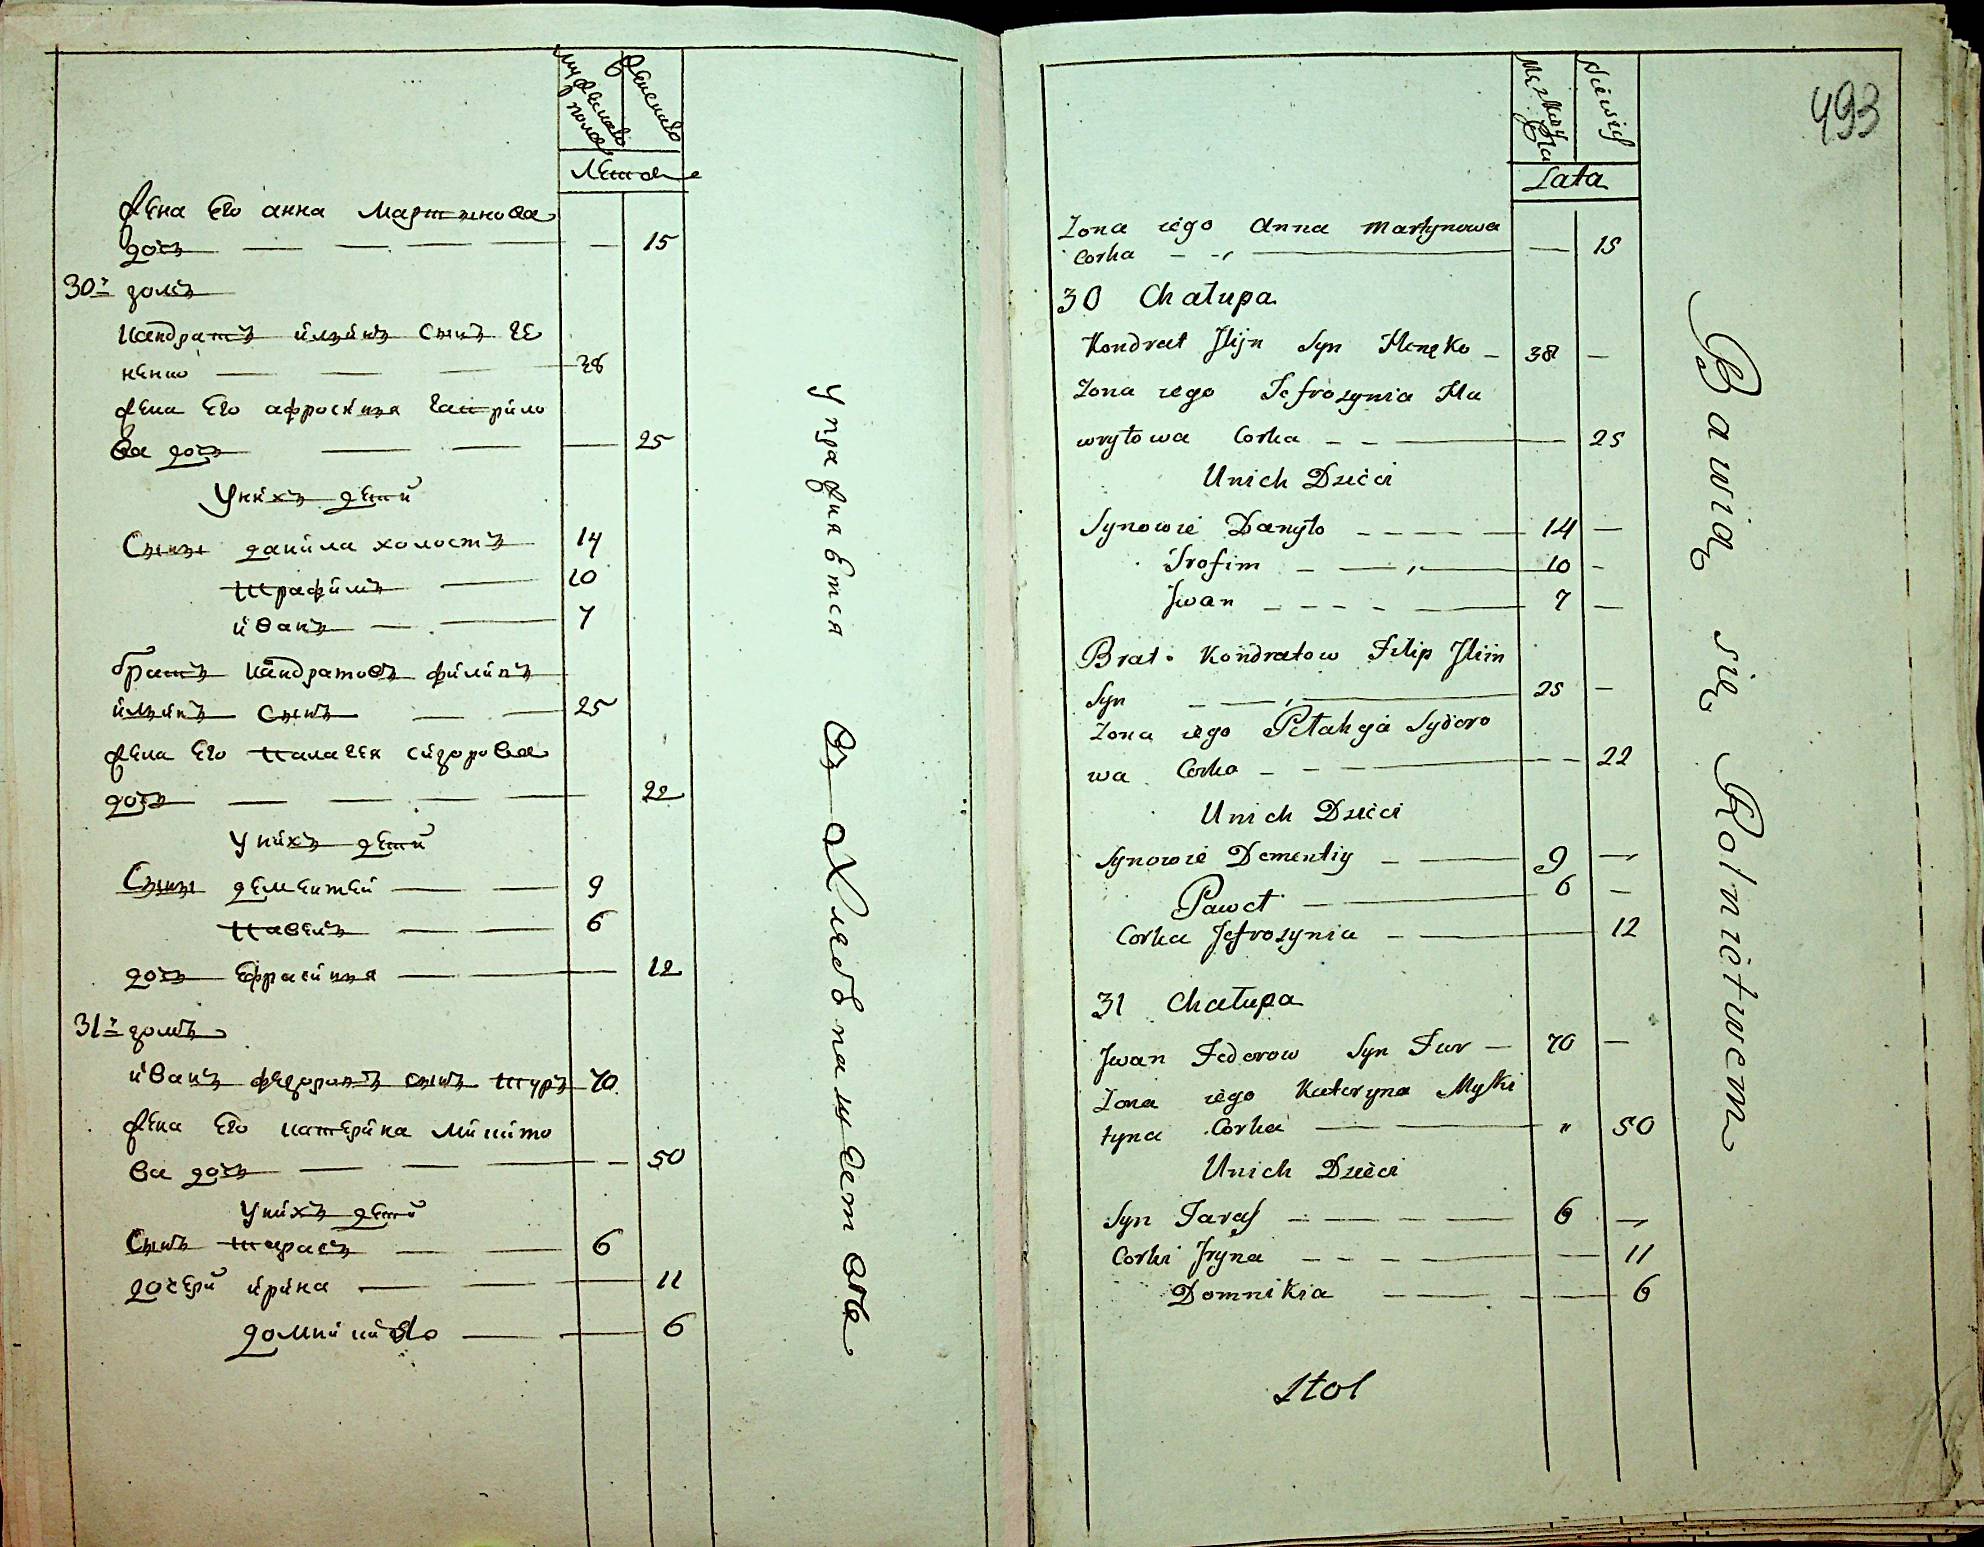 мужеска полу
женска
Лета
жена его анна мартинова
дочь 15
30й домъ
кандратъ ильинъ сынъ ге
ненко 38
жена его афросиния гаврило
ва дочь 25
у нихъ дети
Сыны данила холостъ 14
трафимъ 10
иванъ 7
братъ кандратовъ филипъ
ильинъ сынъ 25
жена его палагея сидорова
дочь 22
у нихъ дети
Сыны дементей 9
павелъ 6
дочь ефросиния 12
31й домъ
иванъ федоровъ сынъ туръ 70
жена его катерина микито
ва дочь 50
у нихъ дети
Сынъ тарасъ 6
дочери ирина 11
6
упражняются въ хлебопашестве
493
Lata
Zona iego Anna Martynowa
Corka 15
30 Chałupa
Kondrat Ilijn Syn Henęko 38
Zona iego Jefrozynia Ha
wryłowa Corka 25
Unich Dzieci
Synowie Danyło 14
Trofim 10
Jwan 7
Brat Kondratow Filip Iliin
Syn 25
Zona iego Pełahgia Sydoro
wa Corka 22
Unich Dzieci
Synowie Dementiy 9
Paweł 6
Corka Jefrozynia 12
31 Chałupa
Jwan Fedorow Syn Tur 70
Zona iego Kateryna Myki
tyna Corka " 50
Unich Dzieci
Syn Taras 6
Corki Jryna 11
Domnikia 6
Stol
Bawią się Rolnictwem